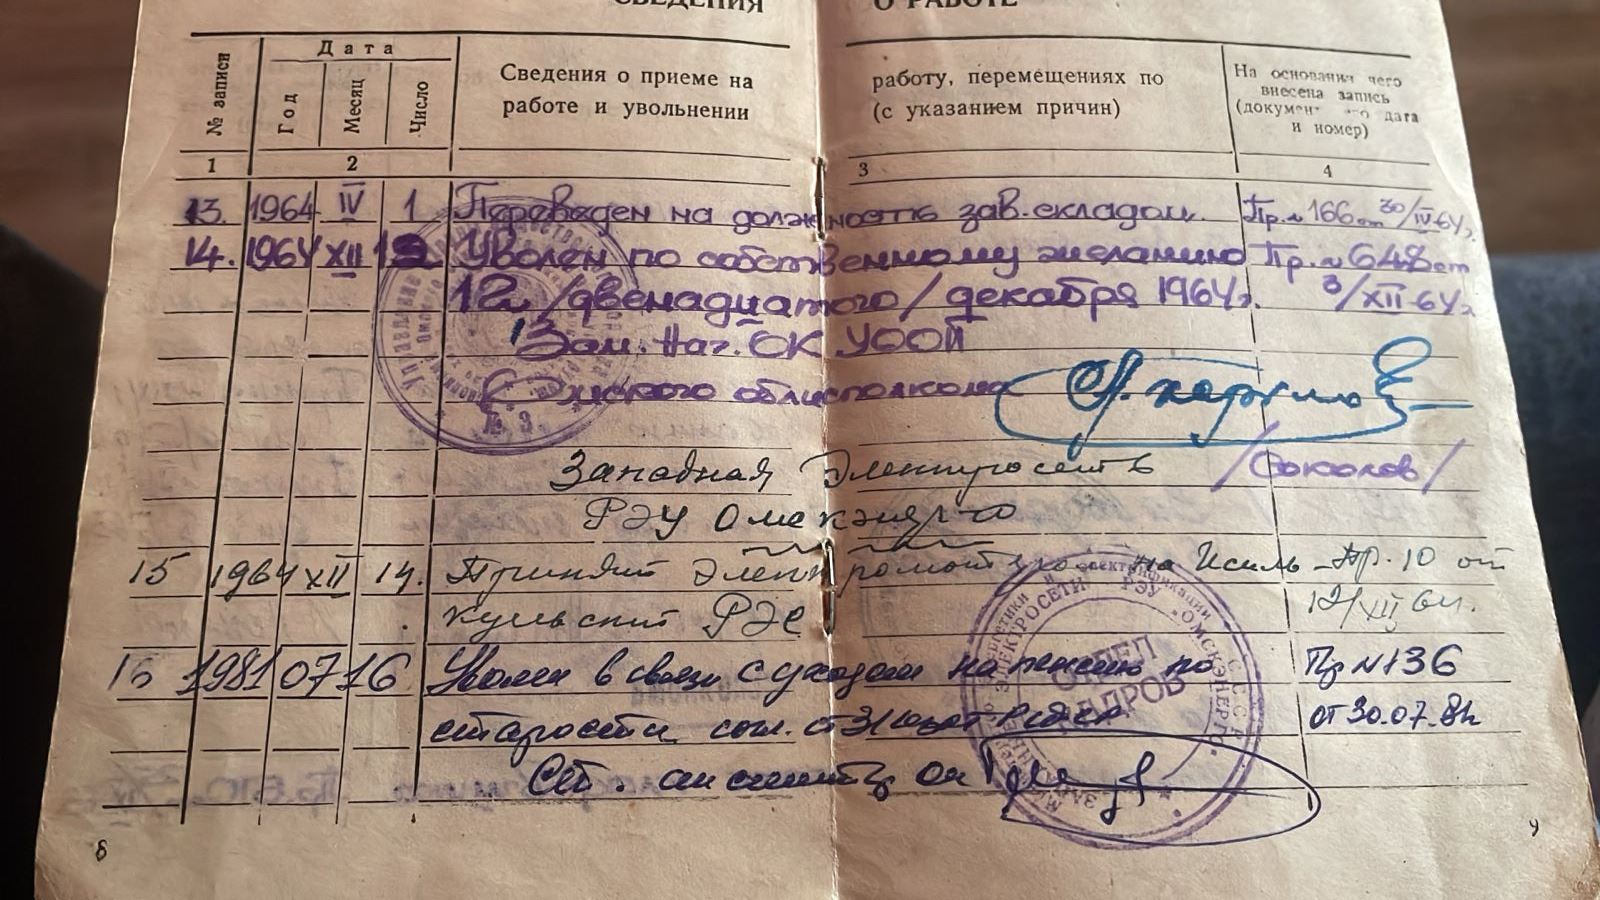 СВЕДЕНИЯ О РАБОТЕ
№ записи
Дата
Год
Месяц
Число
Сведения о приеме на
работе и увольнении
работу, перемещениях по
(с указанием причин)
На основании чего
внесена запись
(документ, его дата
и номер)
1 2 3 4
13. 1964 IV 1 Переведен на должность зав. складом. Пр. № 166 от 30/IV-64 г.
14. 1964 XII 12 Уволен по собственному желанию Пр. № 648 от
12 /двенадцатого/ декабря 1964 г. 3/XII-64 г.
Зам. Нач. ОК УООП
Омского облисполкома
/Соколов/
Западная Электросеть
РЭУ Омскэнерго
15 1964 XII 14. Принят Электромонтером на Исиль- Пр. 10 от
кульский РЭС 12/XII 64.
16 1981 07 16 Уволен в связи с уходом на пенсию по Пр № 136
старости согл. ст 31 РСФСР от 30.07.81
Ст. ок
№ 3
РЭУ ОМСКЭНЕРГО
ЭЛЕКТРОСЕТИ
ОТДЕЛ
КАДРОВ
8
9